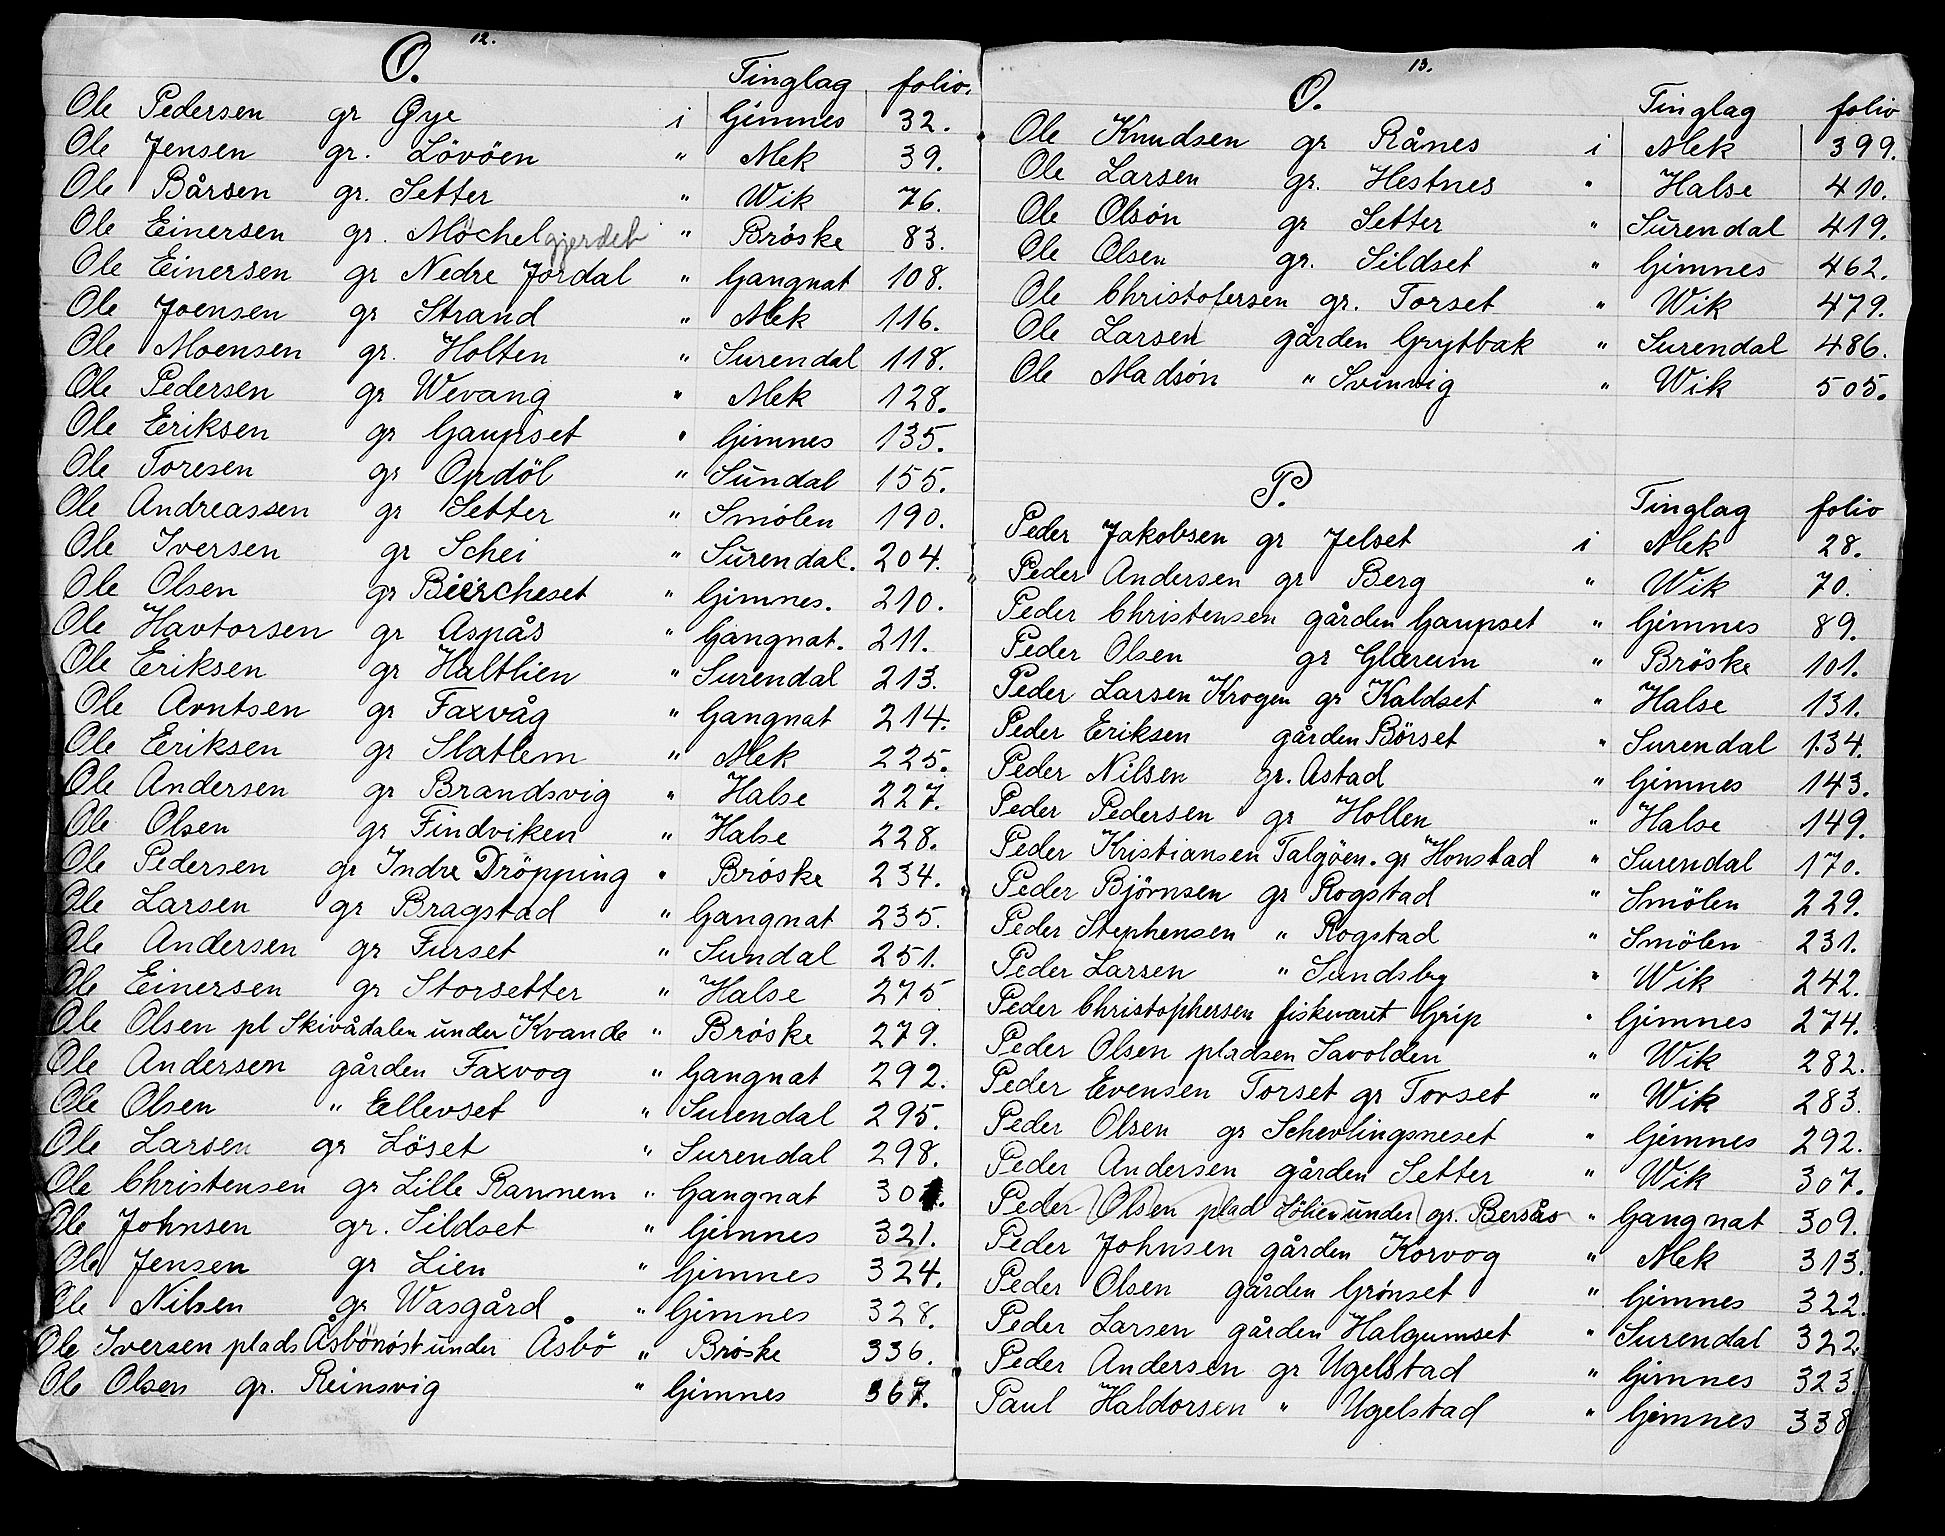 12.
O. Tinglag folio.
Ole Pedersen gr Øye i Gimnes 32.
Ole Jensen gr. Lövöen " Mek 39.
Ole Bårsen gr. Setter " Wik 76.
Ole Einersen gr. Möchelgjerdet " Bröske 83.
Ole Einersen gr Nedre Jordal " Gangnat 108.
Ole Joensen gr Strand " Mek 116.
Ole Moensen gr. Holten " Surendal 118.
Ole Pedersen gr Wevang " Mek 128.
Ole Eriksen gr Gaupset " Gimnes 135.
Ole Toresen gr Opdöl " Sundal 155.
Ole Andreassen gr Setter " Smölen 190.
Ole Iversen gr Schei " Surendal. 204.
Ole Olsen gr Beercheset " Gimnes. 210.
Ole Havtorsen gr Aspås " Gangnat. 211.
Ole Eriksen gr Haltlien " Surendal 213.
Ole Arntsen gr Faxvåg " Gangnat 214.
Ole Eriksen gr Slatlem " Mek 225.
Ole Andersen gr Brandsvig " Halse 227.
Ole Olsen gr Findviken " Halse 228.
Ole Pedersen gr Indre Dröpping " Bröske 234.
Ole Larsen gr Bragstad " Gangnat 235.
Ole Andersen gr Furset " Sundal 251.
Ole Einersen gr Storsetter " Halse 275
Ole Olsen pl Skivådalen under Kvande " Bröske 279.
Ole Andersen gården Faxvog " Gangnat 292.
Ole Olsen " Ellevset " Surendal 295.
Ole Larsen gr Löset " Surendal 298.
Ole Christensen gr Lille Rannem " Gangnat 301.
Ole Johnsen gr. Sildset " Gimnes 321.
Ole Jensen gr Lien " Gimnes 324.
Ole Nilsen gr Wasgård " Gimnes 328.
Ole Iversen plads Åsbönöst under Åsbö " Bröske 336.
Ole Olsen gr. Reinsvig " Gimnes 367.
13.
O. Tinglag folio
Ole Knudsen gr Rånes i Mek 399.
Ole Larsen gr. Hestnes " Halse 410.
Ole Olsön gr Setter " Surendal 419.
Ole Olsen gr. Sildset " Gimnes 462.
Ole Christofersen gr. Torset " Wik 479.
Ole Larsen gården Grytbak " Surendal 486.
Ole Madsön " Svinvig " Wik 505.
P. Tinglag folio
Peder Jakobsen gr Jelset i Mek 28.
Peder Andersen gr Berg " Wik 70.
Peder Christensen gården Gaupset " Gimnes 89.
Peder Olsen gr Glærum " Bröske 101.
Peder Larsen Krogen gr Kaldset " Halse 131.
Peder Eriksen gården Börset " Surendal 134.
Peder Nilsen gr. Astad " Gimnes 143.
Peder Pedersen gr Hollen " Halse 149.
Peder Kristiansen Talgöen. gr Honstad " Surendal 170.
Peder Björnsen gr Rogstad " Smölen 229.
Peder Stephensen " Rogstad " Smölen 231.
Peder Larsen " Sundsby " Wik 242.
Peder Christophersen fiskeværet Grip " Gimnes 274.
Peder Olsen pladsen Savolden " Wik 282.
Peder Evensen Torset gr Torset " Wik 283.
Peder Olsen gr Schevlingsneset " Gimnes 292.
Peder Andersen gården Setter " Wik 307.
Peder Olsen plad Lölien under gr. Bersås " Gangnat 309.
Peder Johnsen gården Korvog " Mek 313.
Peder Olsen gården Grönset " Gimnes 322.
Peder Larsen gården Halgumset " Surendal 322.
Peder Andersen gr Ugelstad " Gimnes 323.
Paul Haldorsen " Ugelstad " Gimnes 338